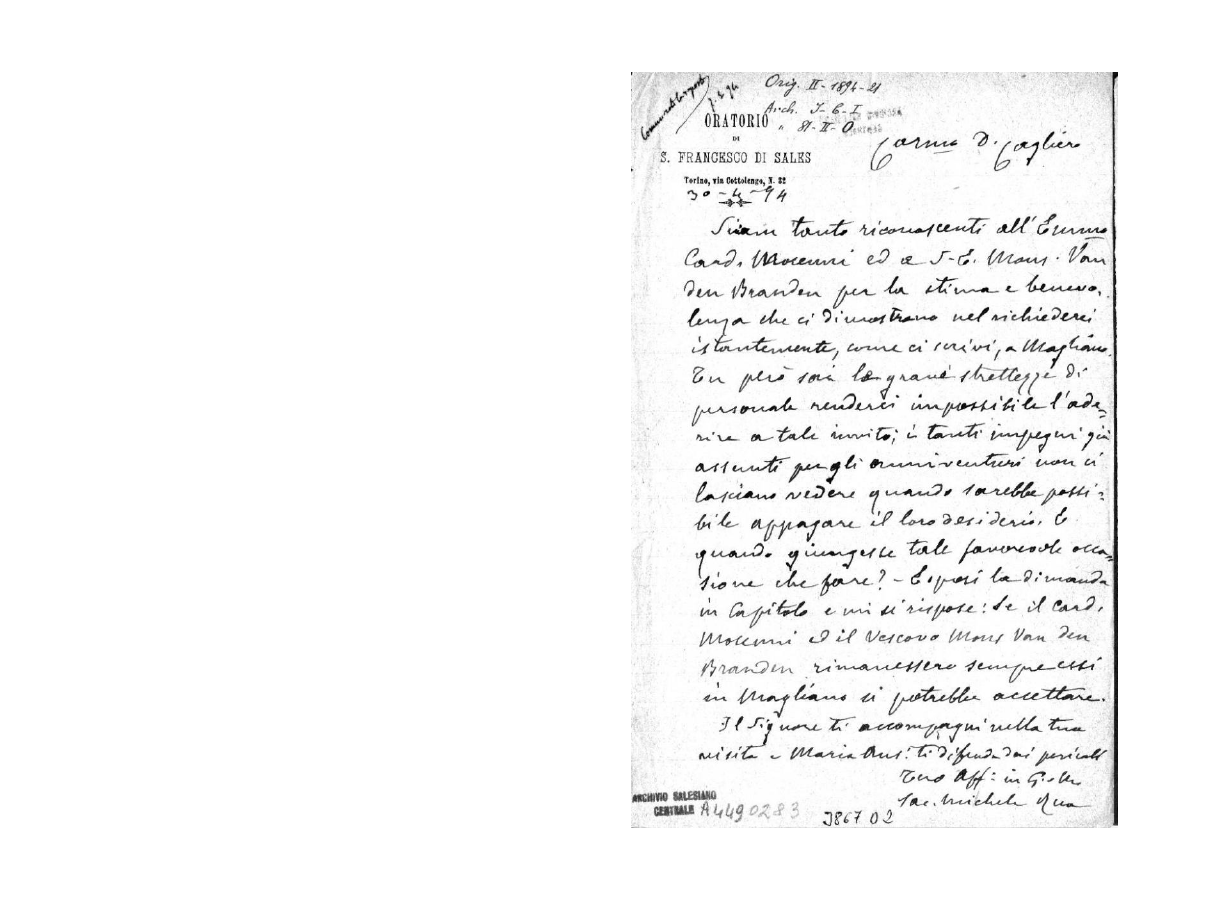 Orig. II-1894-21
Arch. I-6-I
" 81-II-0
ORATORIO
DI
S. FRANCESCO DI SALES
Torino, via Cottolengo, N. 32
30-4-94
Carmo D. Cagliero
Siam tanto riconoscenti all'Emmo
Card. Mocenni ed a S. E. Mons. Van
den Branden per la stima e benevo-
lenza che ci dimostrano nel richiederci
istantemente, come ci scrivi, a Magliano.
Tu però sai le gravi strettezze di
personale renderci impossibile l'ade-
rire a tale invito; i tanti impegni già
assunti per gli anni venturi non ci
lasciano vedere quando sarebbe possi-
bile appagare il loro desiderio. E
quando giungesse tale favorevole occa-
sione che fare? - Esposi la dimanda
in Capitolo e mi si rispose: Se il Card.
Mocenni ed il Vescovo Mons Van den
Branden rimanessero sempre essi
in Magliano si potrebbe accettare.
Il Signore ti accompagni nella tua
visita e Maria Aus: ti difenda dai pericoli
Tuo Aff: in G. e M.
Sac. Michele Rua
ARCHIVIO SALESIANO
CENTRALE A4490283
3867 02